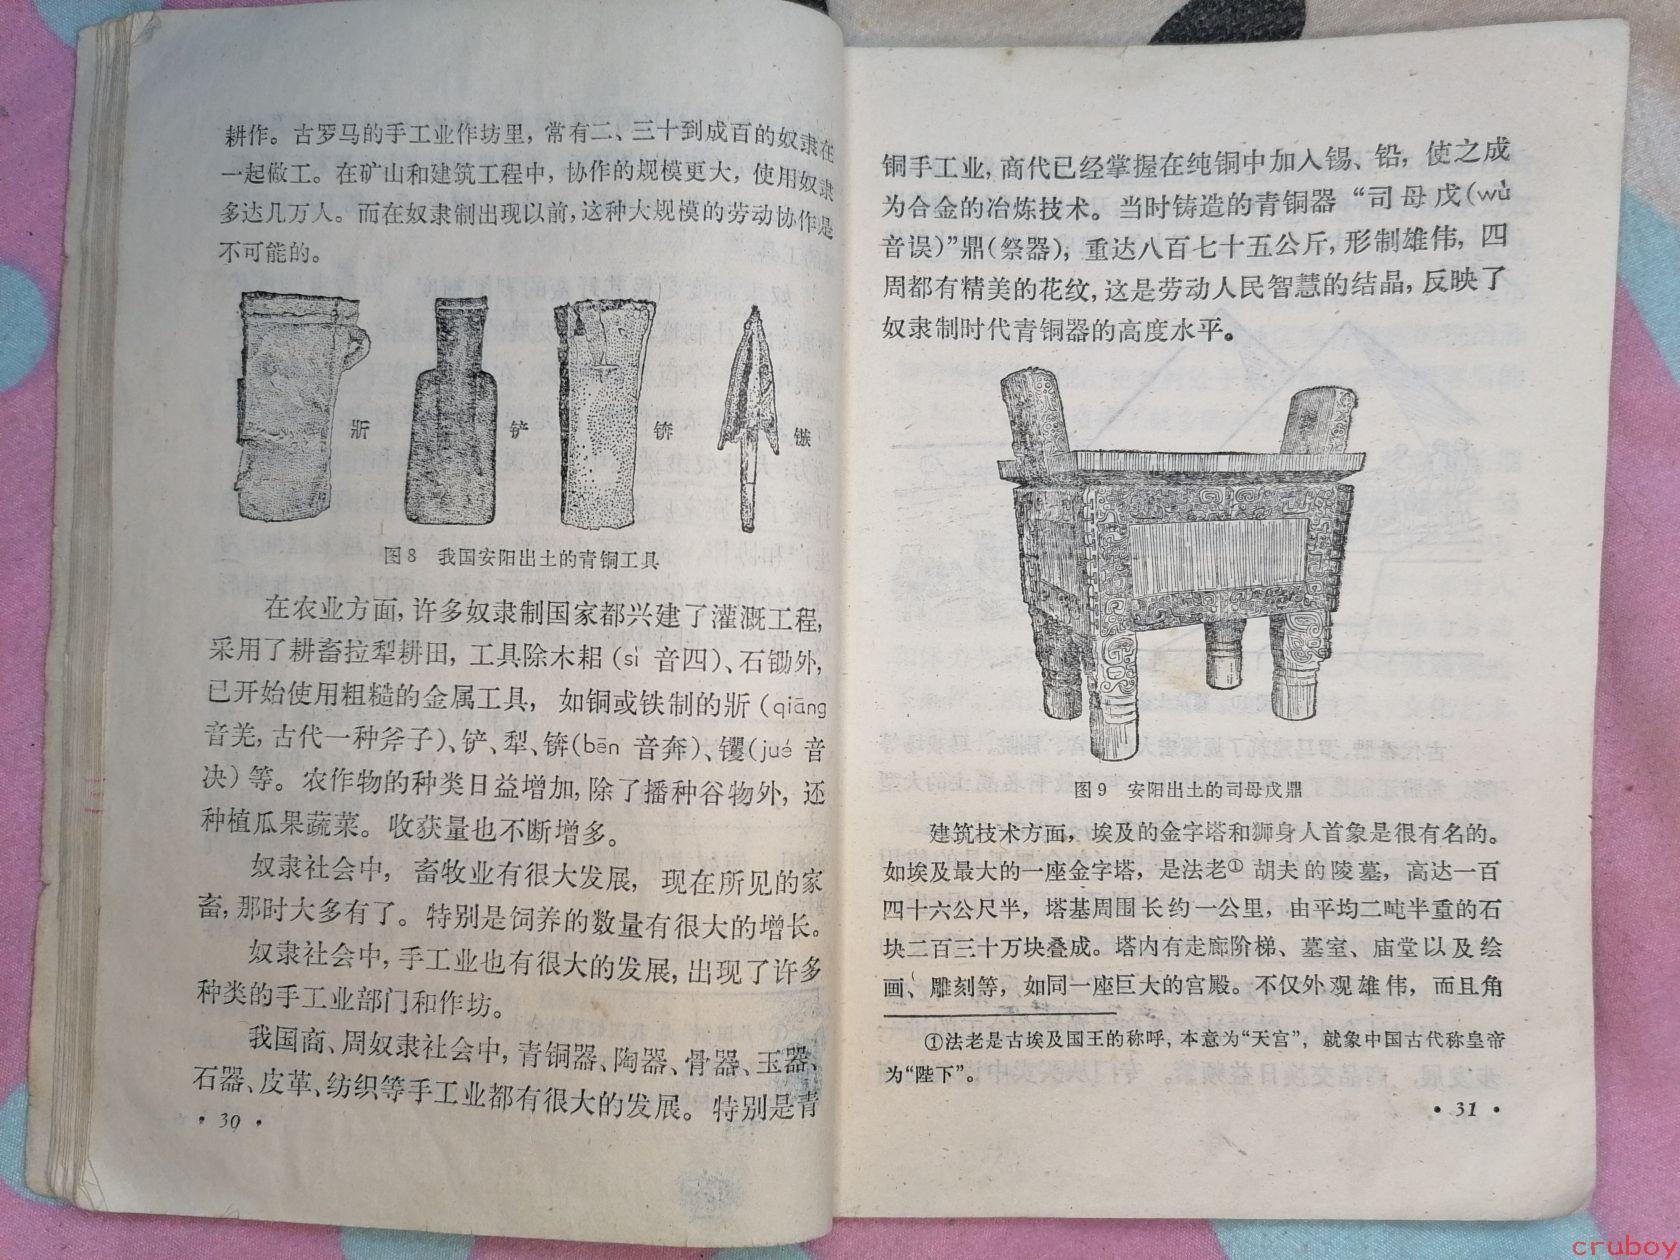 耕作。古罗马的手工业作坊里，常有二、三十到成百的奴隶在
一起做工。在矿山和建筑工程中，协作的规模更大，使用奴隶
多达几万人。而在奴隶制出现以前，这种大规模的劳动协作是
不可能的。
斨
铲
锛
镞
图8 我国安阳出土的青铜工具
在农业方面，许多奴隶制国家都兴建了灌溉工程，
采用了耕畜拉犁耕田，工具除木耜（sì 音四）、石锄外，
已开始使用粗糙的金属工具，如铜或铁制的斨（qiāng
音羌，古代一种斧子）、铲、犁、锛（bēn 音奔）、䦆（jué 音
决）等。农作物的种类日益增加，除了播种谷物外，还
种植瓜果蔬菜。收获量也不断增多。
奴隶社会中，畜牧业有很大发展，现在所见的家
畜，那时大多有了。特别是饲养的数量有很大的增长。
奴隶社会中，手工业也有很大的发展，出现了许多
种类的手工业部门和作坊。
我国商、周奴隶社会中，青铜器、陶器、骨器、玉器、
石器、皮革、纺织等手工业都有很大的发展。特别是青
• 30 •
铜手工业，商代已经掌握在纯铜中加入锡、铅，使之成
为合金的冶炼技术。当时铸造的青铜器“司母戊（wù
音误）”鼎（祭器），重达八百七十五公斤，形制雄伟，四
周都有精美的花纹，这是劳动人民智慧的结晶，反映了
奴隶制时代青铜器的高度水平。
图9 安阳出土的司母戊鼎
建筑技术方面，埃及的金字塔和狮身人首象是很有名的。
如埃及最大的一座金字塔，是法老①胡夫的陵墓，高达一百
四十六公尺半，塔基周围长约一公里，由平均二吨半重的石
块二百三十万块叠成。塔内有走廊阶梯、墓室、庙堂以及绘
画、雕刻等，如同一座巨大的宫殿。不仅外观雄伟，而且角
①法老是古埃及国王的称呼，本意为“天宫”，就象中国古代称皇帝
为“陛下”。
• 31 •
cruboy